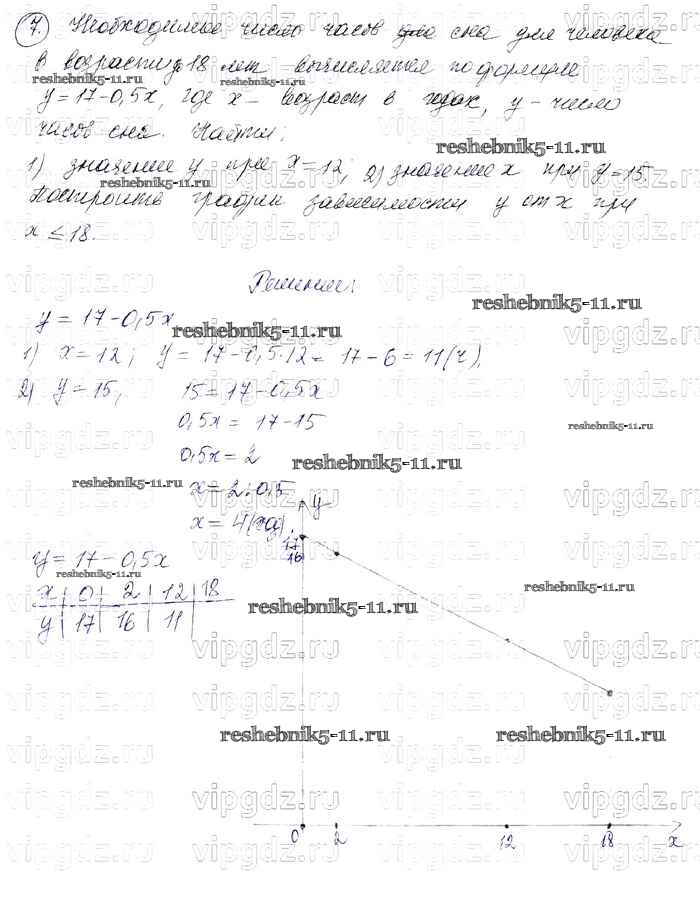 7. Необходимое число часов для сна для человека
в возрасти до 18 лет вычисляется по формуле
y = 17 - 0,5x, где x - возраст в годах, y - число
часов сна. Найти:
1) значение y при x = 12; 2) значение x при y = 15.
Построить график зависимости y от x при
x ≤ 18.
Решение:
y = 17 - 0,5x
1) x = 12; y = 17 - 0,5·12 = 17 - 6 = 11(ч),
2) y = 15, 15 = 17 - 0,5x
0,5x = 17 - 15
0,5x = 2
x = 2 : 0,5
x = 4
y = 17 - 0,5x
x 0 2 12 18
y 17 16 11
y
17
16
0 2 12 18 x
reshebnik5-11.ru
vipgdz.ru